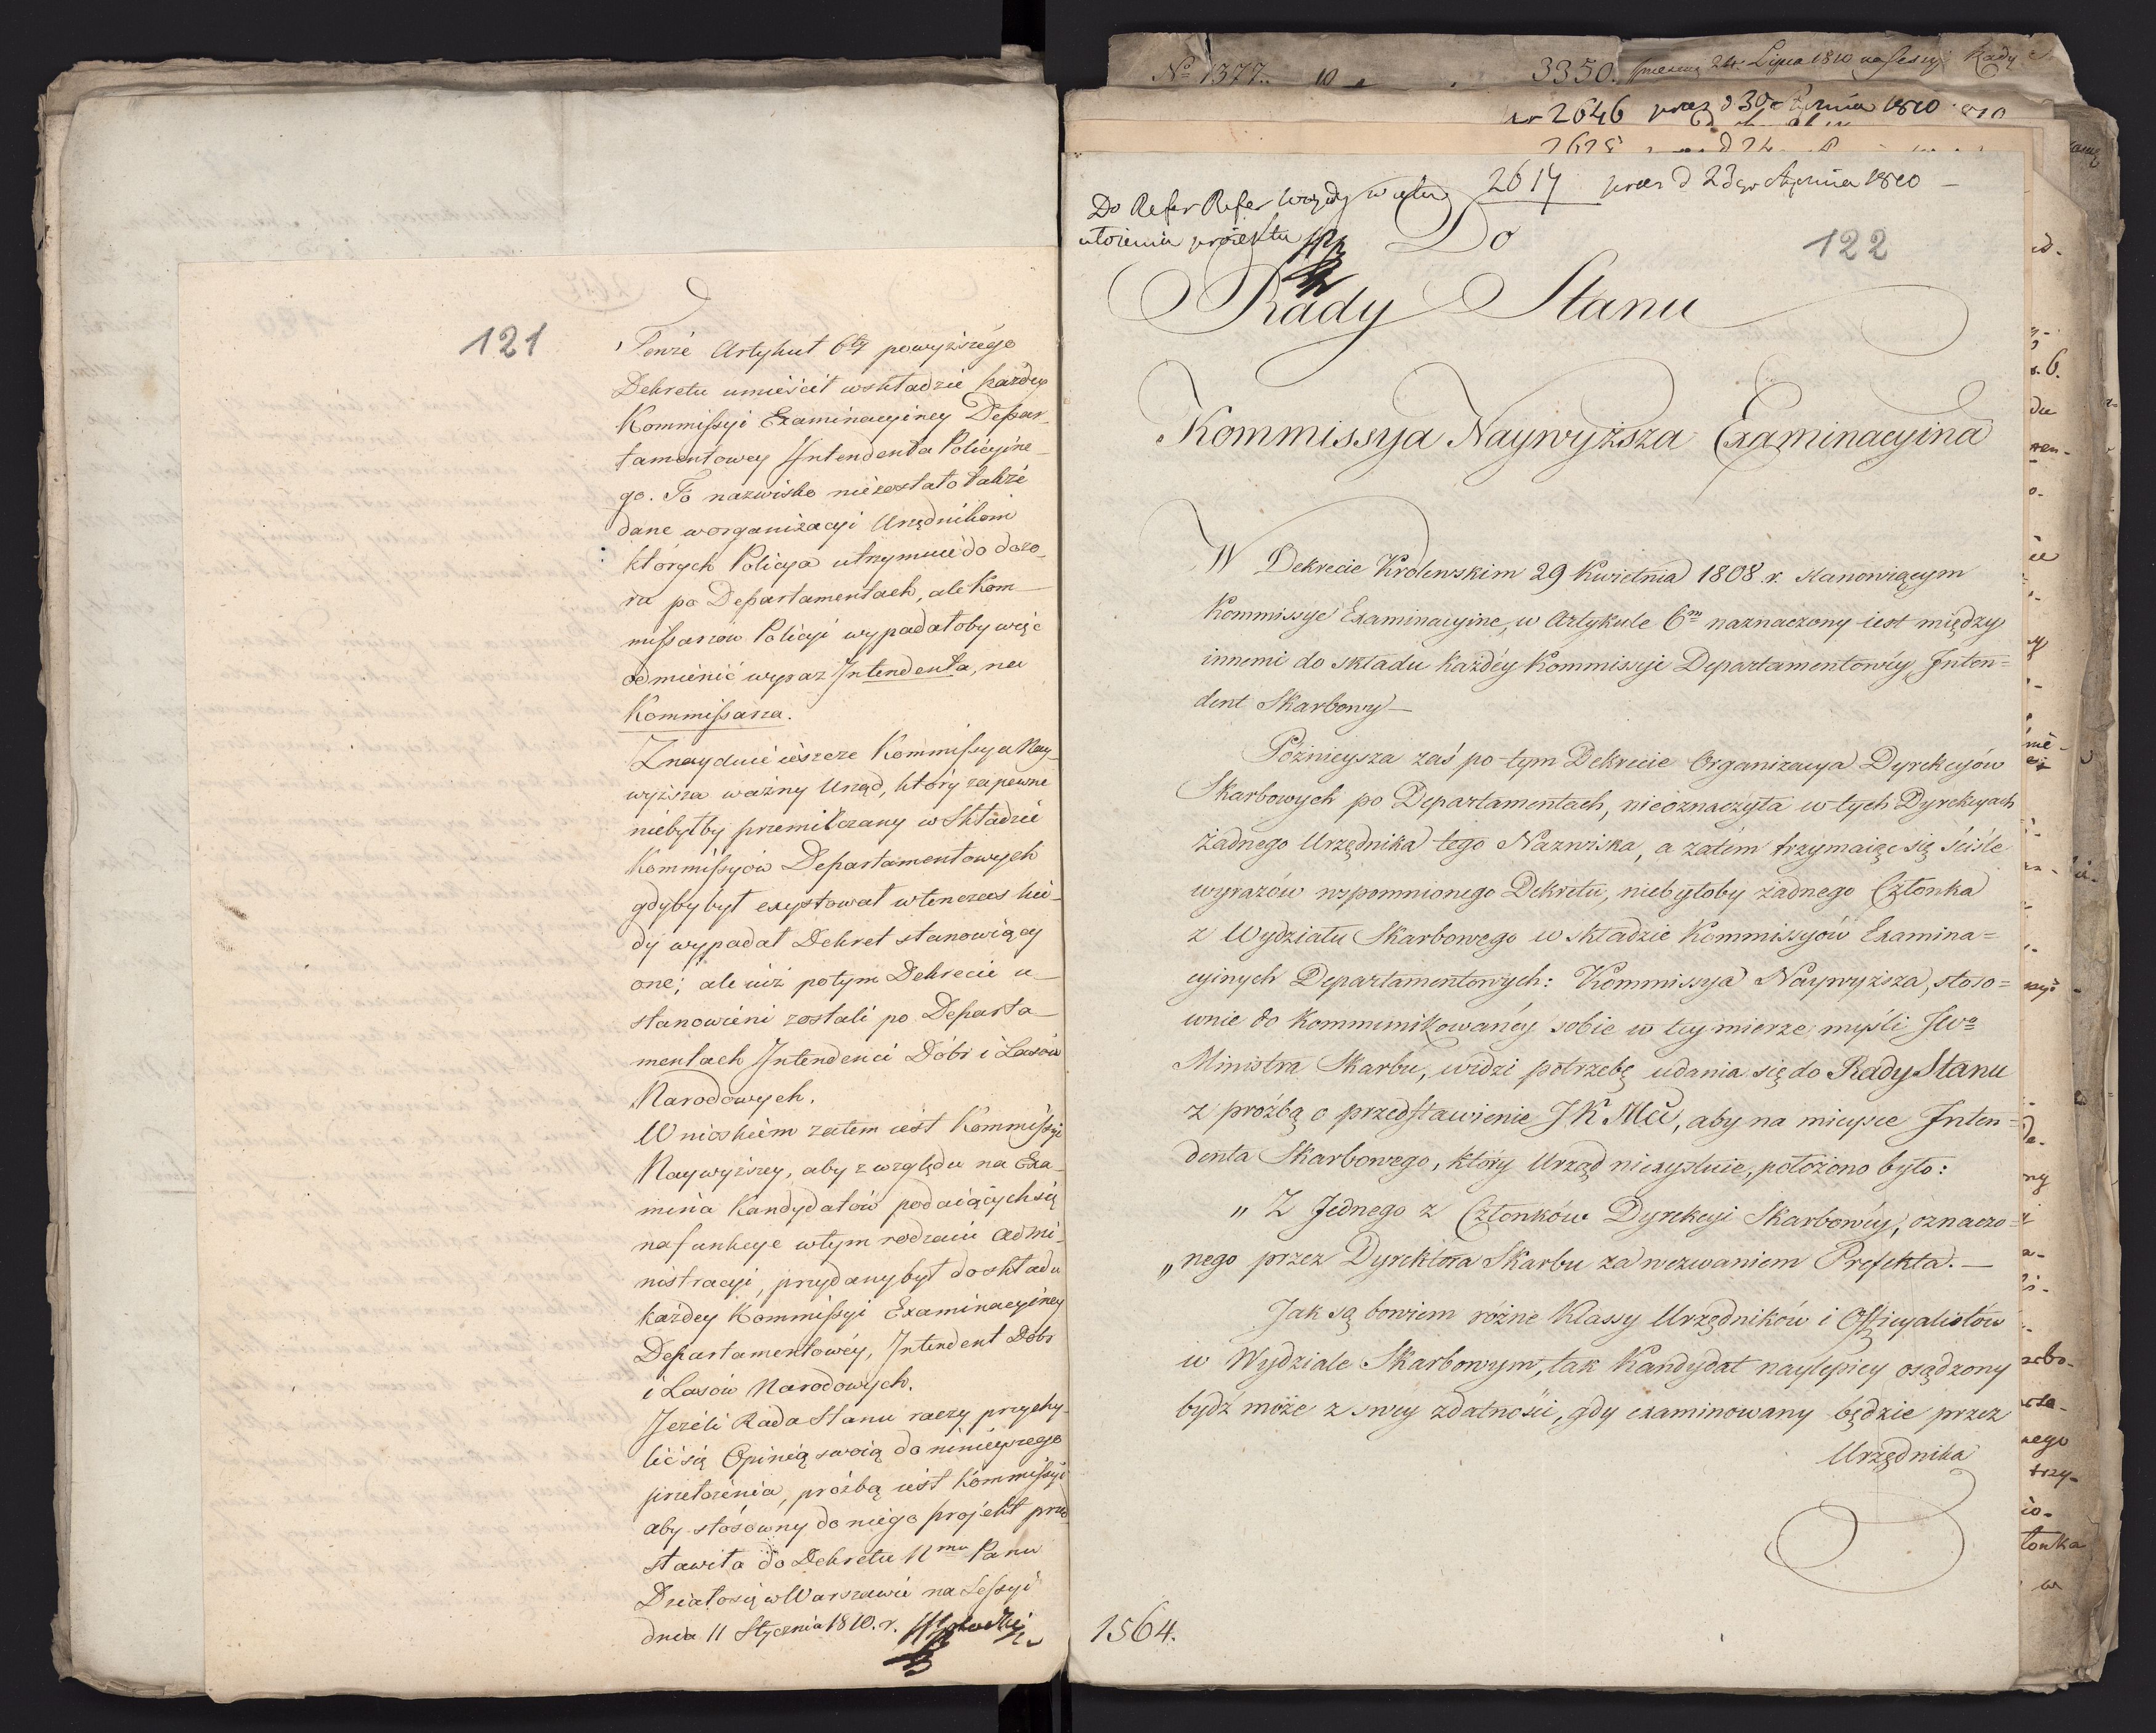 121
Tenże Artykuł 6ty powyższego
Dekretu umieścił wskładzie każdey
Kommissyi Examinacyiney Depar-
tamentowey Intendenta Policyine-
go. To nazwisko niezostało także
dane worganizacyi Urzędnikom
których Policya utrzymuie do dozo-
ru po Departamentach, ale Kom-
missarzów Policyi wypadałoby więc
odmienić wyraz Intendenta, na
Kommissarza.
Znayduie ieszcze Kommissya Nay-
wyższa ważny Urząd, który zapewne
niebyłby przemilczany w Składzie
Kommissyów Departamentowych
gdyby był exystował wtenczas kie-
dy wypadał Dekret stanowiący
one; ale iuż potym Dekrecie u-
stanowieni zostali po Departa-
mentach Intendenci Dóbr i Lasów
Narodowych.
Wnioskiem zatem iest Kommissyi
Naywyższey, aby z względu na Exa-
mina Kandydatów podaiących się
na funkcye wtym rodzaiu admi-
nistracyi, przydany był do składu
każdey Kommissyi Examinacyiney
Departamentowéy, Intendent Dóbr
i Lasów Narodowych.
Jeżeli Rada Stanu raczy przychy-
lić się Opinią swoią do ninieyszego
przełożenia, proźbą iest Kommissyi
aby stósowny do niego projekt przed-
stawiła do Dekretu Nmu Panu
Działo się w Warszawie na Sessyi
dnia 11 Stycznia 1810. r.
No 1377. 10
3350. 24. Lipca 1810 na Sessyi Rady
nr 2646 prez d 30 Stycznia 1810
2617 prez d 23go Stycznia 1810 -
Do Refer Refer w celu
ułożenia projektu
122
Do
Rady Stanu
Kommissya Naywyższa Examinacyina
W Dekrecie Królewskim 29 Kwietnia 1808 r. stanowiącym
Kommissye Examinacyine, w Artykule 6m naznaczony iest między
innemi do składu każdéy Kommissyi Departamentowéy Inten=
dent Skarbowy —
Późnieysza zaś po-tym Dekrecie Organizacya Dyrekcyów
Skarbowych po Departamentach, nieoznaczyła w tych Dyrekcyach
żadnego Urzędnika tego Nazwiska, a zatém trzymaiąc się ściśle
wyrazów wspomnionego Dekretu, niebyłoby żadnego Członka
z Wydziału Skarbowego w składzie Kommissyów Examina=
cyinych Departamentowych: Kommissya Naywyższa, stoso=
wnie do kommunikowanéy sobie w tey mierze myśli JWo
Ministra Skarbu, widzi potrzebę udania się do Rady Stanu
z proźbą o przedstawienie J K Mci, aby na mieysce Inten=
denta Skarbowego, który Urząd niexystuie, położono było:
„ Z Jednego z Członków Dyrekcyi Skarbowéy, oznaczo=
„ nego przez Dyrektora Skarbu za wezwaniem Prefekta. —
Jak są bowiem różne Klassy Urzędników i Officyalistów
w Wydziale Skarbowym, tak Kandydat naylepiey osądzony
bydź może z swey zdatności, gdy examinowany będzie przez
Urzędnika
1564.